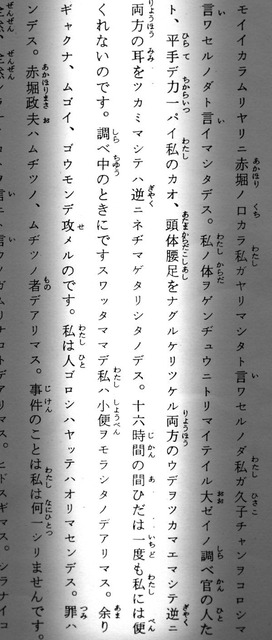 モイイカラムリヤリニ赤堀ノ口カラ私ガヤリマシタト言ワセルノダ私ガ久子チャンヲコロシマ
言ワセルノダト言イマシタデス。私ノ体ヲゲンヂュウニトリマイテイル大ゼイノ調べ官の人た
ト、平手デ力一パイ私のカオ、頭体腰足をナグルケリツケル両方のウデヲツカマエマシテ逆ニ
両方の耳をツカミマシテハ逆ニネヂマゲタリシタノデス。十六時間の間ひだは一度も私には便
くれないのです。調べ中のときにですスワッタママデ私ハ小便ヲモラシタノデアリマス。余り
ギャクナ、ムゴイ、ゴウモンデ攻メルのです。私は人ゴロシハヤッテハオリマセンデス。罪ハ
ンデス。赤堀政夫ハムヂツノ、ムヂツノ者デアリマス。事件のことは私は何一シリませんです。